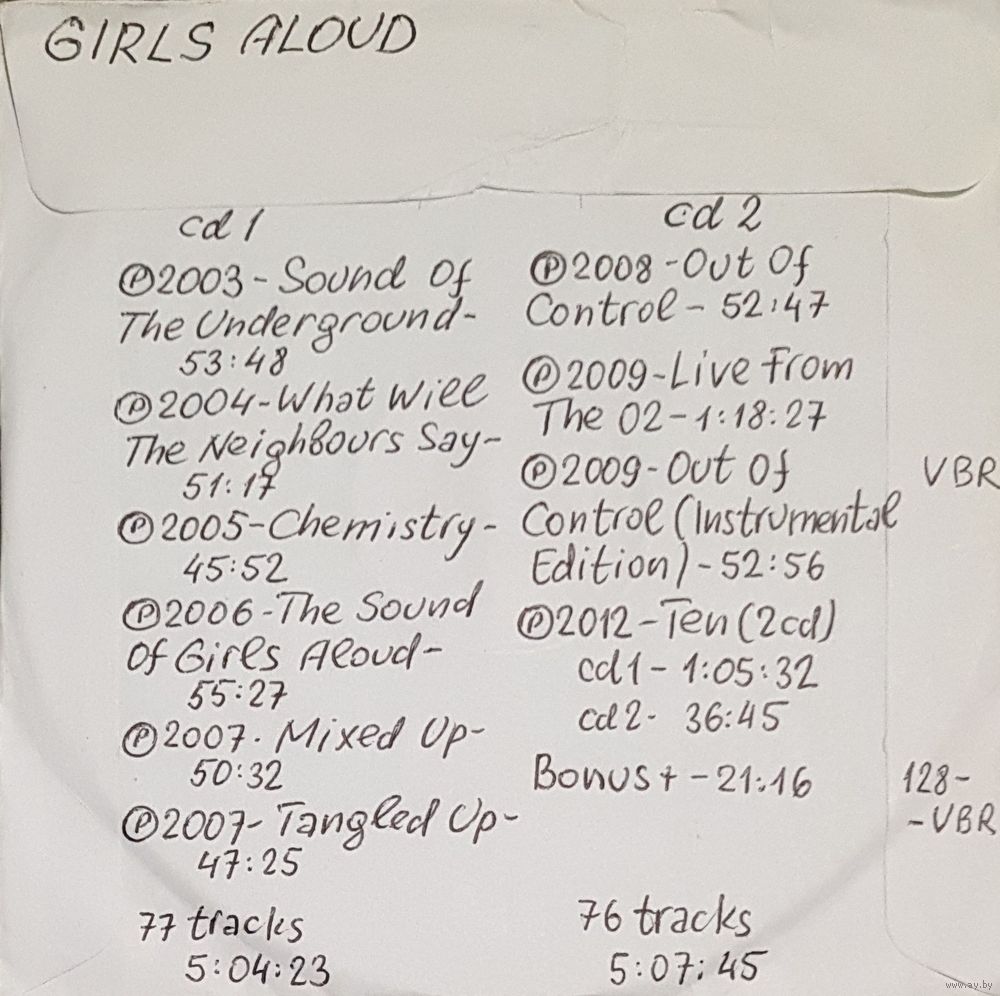 GIRLS ALOUD
cd 1
℗2003-Sound Of
The Underground-
53:48
℗2004-What Will
The Neighbours Say-
51:17
℗2005-Chemistry-
45:52
℗2006-The Sound
Of Girls Aloud-
55:27
℗2007- Mixed Up-
50:32
℗2007-Tangled Up-
47:25
77 tracks
5:04:23
cd 2
℗2008-Out Of
Control-52:47
℗2009-Live From
The O2-1:18:27
℗2009-Out Of
Control (Instrumental
Edition)-52:56
VBR
℗2012-Ten (2cd)
cd1-1:05:32
cd2- 36:45
Bonus+-21:16
128-
-VBR
76 tracks
5:07:45
www.ay.by